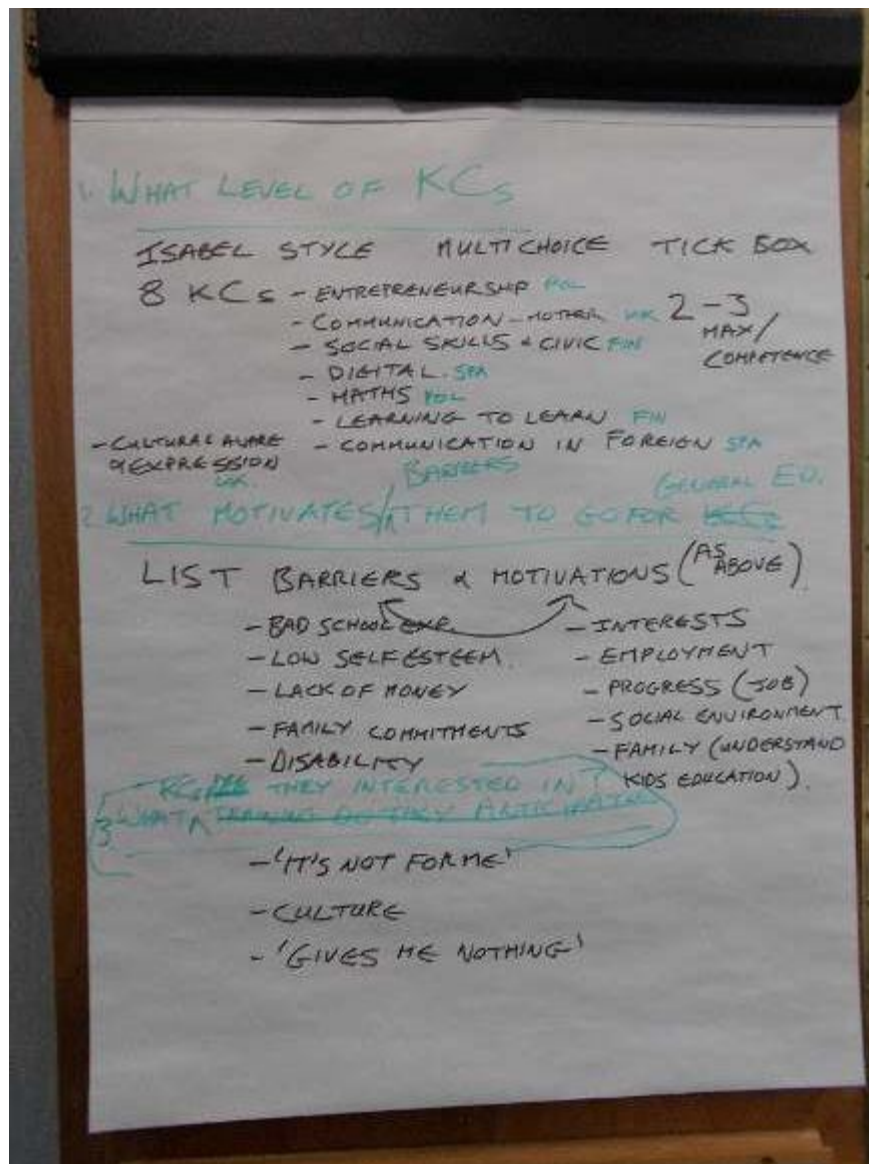 1. WHAT LEVEL OF KCs
ISABEL STYLE MULTICHOICE TICK BOX
8 KCs - ENTREPRENEURSHIP POL
- COMMUNICATION - MOTHER UK
2-3 MAX/
COMPETENCE
- SOCIAL SKILLS & CIVIC FIN
- DIGITAL. SPA
- MATHS POL
- LEARNING TO LEARN FIN
- COMMUNICATION IN FOREIGN SPA
- CULTURAL AWARE
& EXPRESSION
UK
BARRIERS
GENERAL ED.
2 WHAT MOTIVATES/THEM TO GO FOR KCs
LIST BARRIERS & MOTIVATIONS (AS ABOVE)
- BAD SCHOOL EXP.
- LOW SELF ESTEEM.
- LACK OF MONEY
- FAMILY COMMITMENTS
- DISABILITY
- INTERESTS
- EMPLOYMENT
- PROGRESS (JOB)
- SOCIAL ENVIRONMENT
- FAMILY (UNDERSTAND
KIDS EDUCATION).
KCs ARE THEY INTERESTED IN?
3. WHAT TRAINING DO THEY ANTICIPATE
- 'IT'S NOT FOR ME'
- CULTURE
- 'GIVES ME NOTHING'